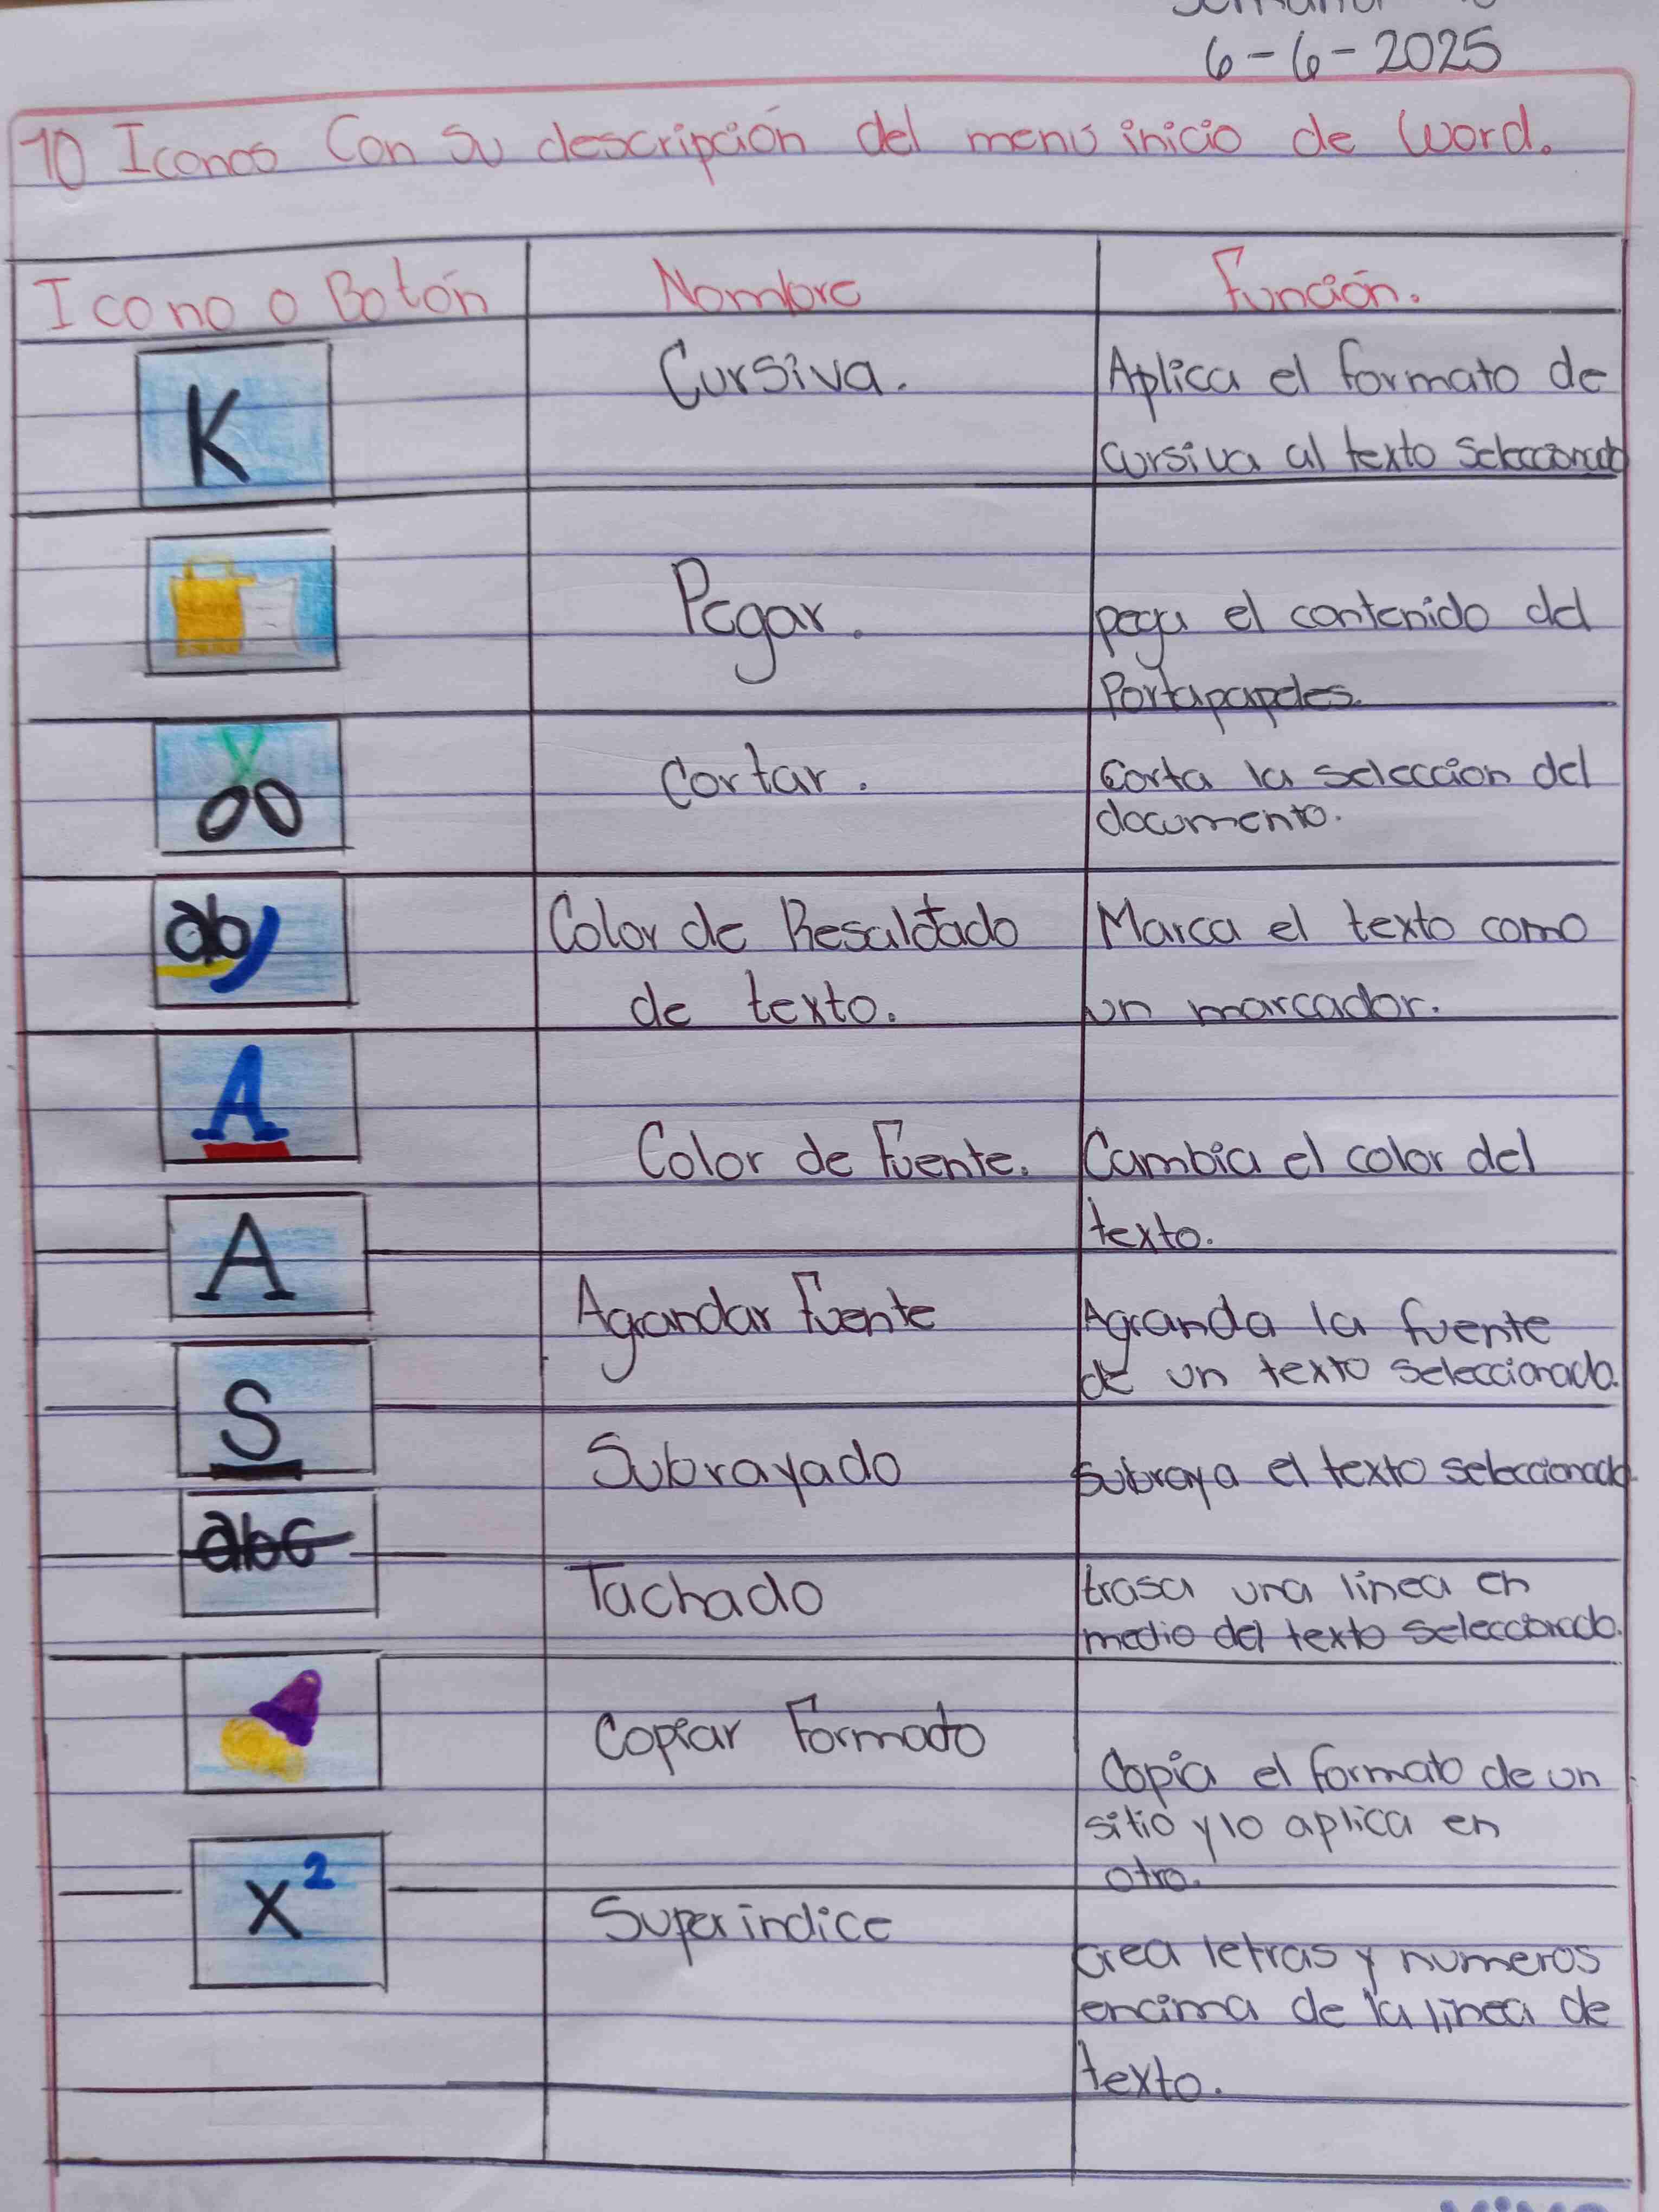 6-6-2025
10 Iconos Con su descripción del menú inicio de Word.
Icono o Botón Nombre Función.
K Cursiva. Aplica el formato de
cursiva al texto seleccionado
Pegar. pega el contenido del
Portapapeles.
Cortar. Corta la seleccion del
documento.
ab Color de Resaldtado Marca el texto como
de texto. un marcador.
A Color de Fuente. Cambia el color del
texto.
A Agrandar Fuente Agranda la fuente
de un texto seleccionado.
S Subrayado Subraya el texto seleccionado.
abc Tachado trasa una linea en
medio del texto seleccionado.
Copiar Formato Copia el formato de un
sitio y lo aplica en
otro.
x² Superindice crea letras y numeros
encima de la linea de
texto.